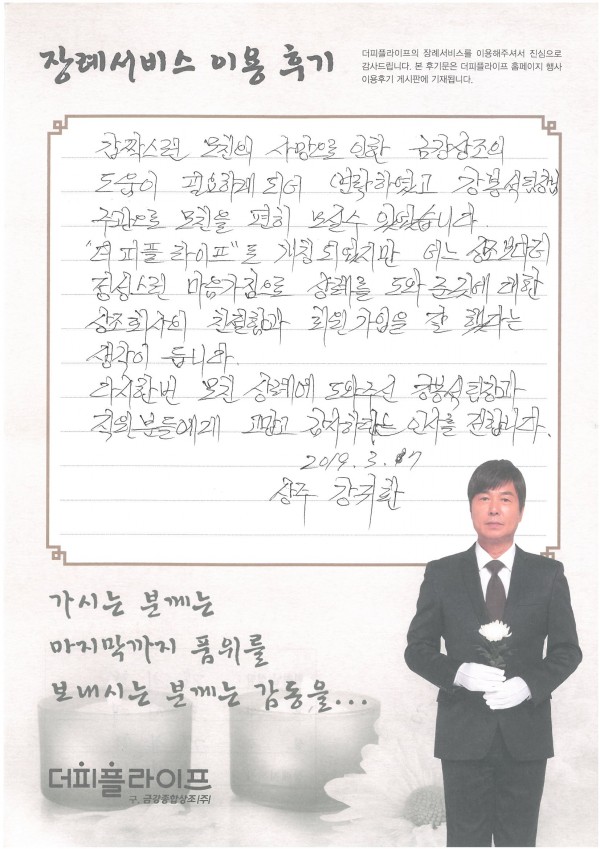 장례서비스 이용 후기
더피플라이프의 장례서비스를 이용해주셔서 진심으로
감사드립니다. 본 후기문은 더피플라이프 홈페이지 행사
이용후기 게시판에 기재됩니다.
갑작스런 모친의 사망으로 인한 금강상조의
도움이 필요하게 되어 연락하였고 강봉석팀장님
주관으로 모친을 편히 모실수 있었습니다.
"더피플 라이프"로 개칭 되었지만 어느 상조보다더
정성스런 마음가짐으로 상례를 도와 준것에 대한
상조회사의 친절함과 회원가입을 잘 했다는
생각이 듭니다.
다시한번 모친 상례에 도와주신 강봉석팀장과
직원분들에게 고맙고 감사하다는 인사를 전합니다.
2019. 3. 17
상주
가시는 분께는
마지막까지 품위를
보내시는 분께는 감동을...
더피플라이프
구. 금강종합상조(주)